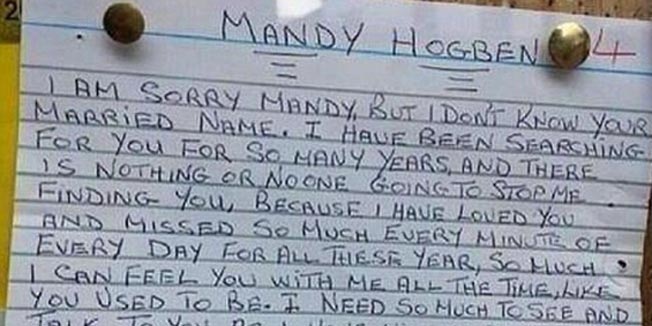 2
MANDY HOGBEN 4
I AM SORRY MANDY, BUT I DON'T KNOW YOUR
MARRIED NAME. I HAVE BEEN SEARCHING
FOR YOU FOR SO MANY YEARS, AND THERE
IS NOTHING OR NOONE GOING TO STOP ME
FINDING YOU, BECAUSE I HAVE LOVED YOU
AND MISSED SO MUCH EVERY MINUTE OF
EVERY DAY FOR ALL THESE YEAR, SO MUCH
I CAN FEEL YOU WITH ME ALL THE TIME, LIKE
YOU USED TO BE. I NEED SO MUCH TO SEE AND
TALK TO YOU